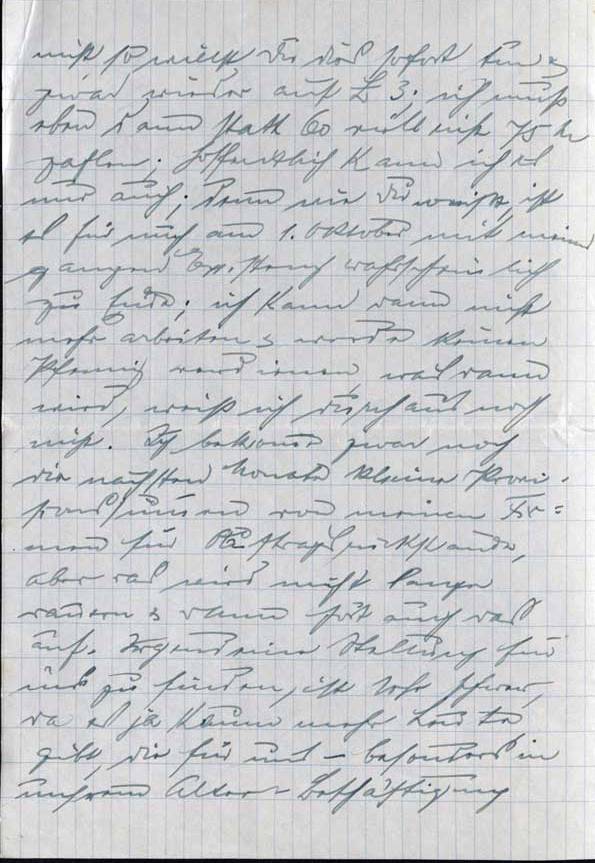 nicht so willst Du dies sofort tun &
zwar wieder auf L 3; ich muß
eben dann statt 60 vielleicht 75 M
zahlen. Hoffentlich kann ich es
nur auch; denn wie Du weißt, ist
es für mich am 1. Oktober mit meiner
ganzen Existenz wahrscheinlich
zu Ende; ich kann dann nicht
mehr arbeiten & werde keinen
Pfennig verdienen, was dann
wird, weiß ich durchaus noch
nicht. Ich bekomme zwar noch
die nächsten Monate kleine Provi-
sionssummen von meinen Fir=
men für Auftragsrückstände,
aber das wird nicht lange
dauern & dann hört auch das
auf. Irgend eine Stellung für
uns zu finden, ist sehr schwer,
da es ja kaum mehr Leute
gibt, die für uns – besonders in
unserem Alter – Beschäftigung